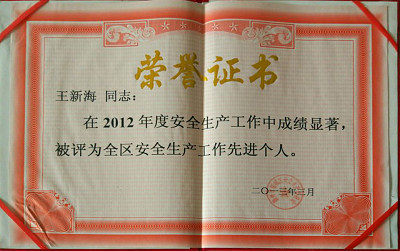 荣誉证书
王新海 同志：
在 2012 年度安全生产工作中成绩显著，
被评为全区安全生产工作先进个人。
二〇一三年三月